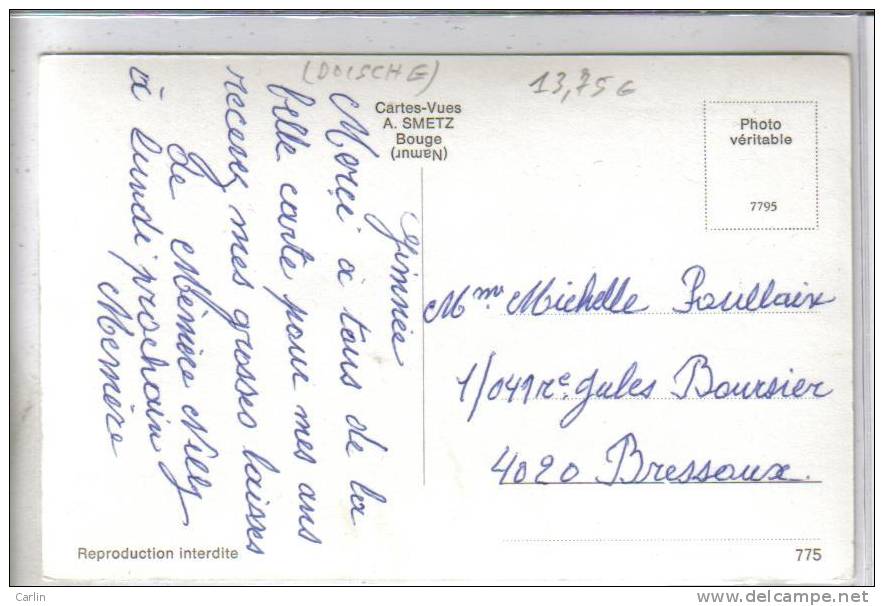 (DOISCHE)
13,75 €
Cartes-Vues
A. SMETZ
Bouge
(Namur)
Photo
véritable
7795
Gimnée
Merci a tous de la
belle carte pour mes ans
recevez mes grosses baisses
De Mémère Nelly
à Lundi prochain
Memère
Mme Michelle Poullaix
1/041 re. Jules Boursier
4020 Bressoux.
Reproduction interdite
775
Carlin
www.delcampe.net